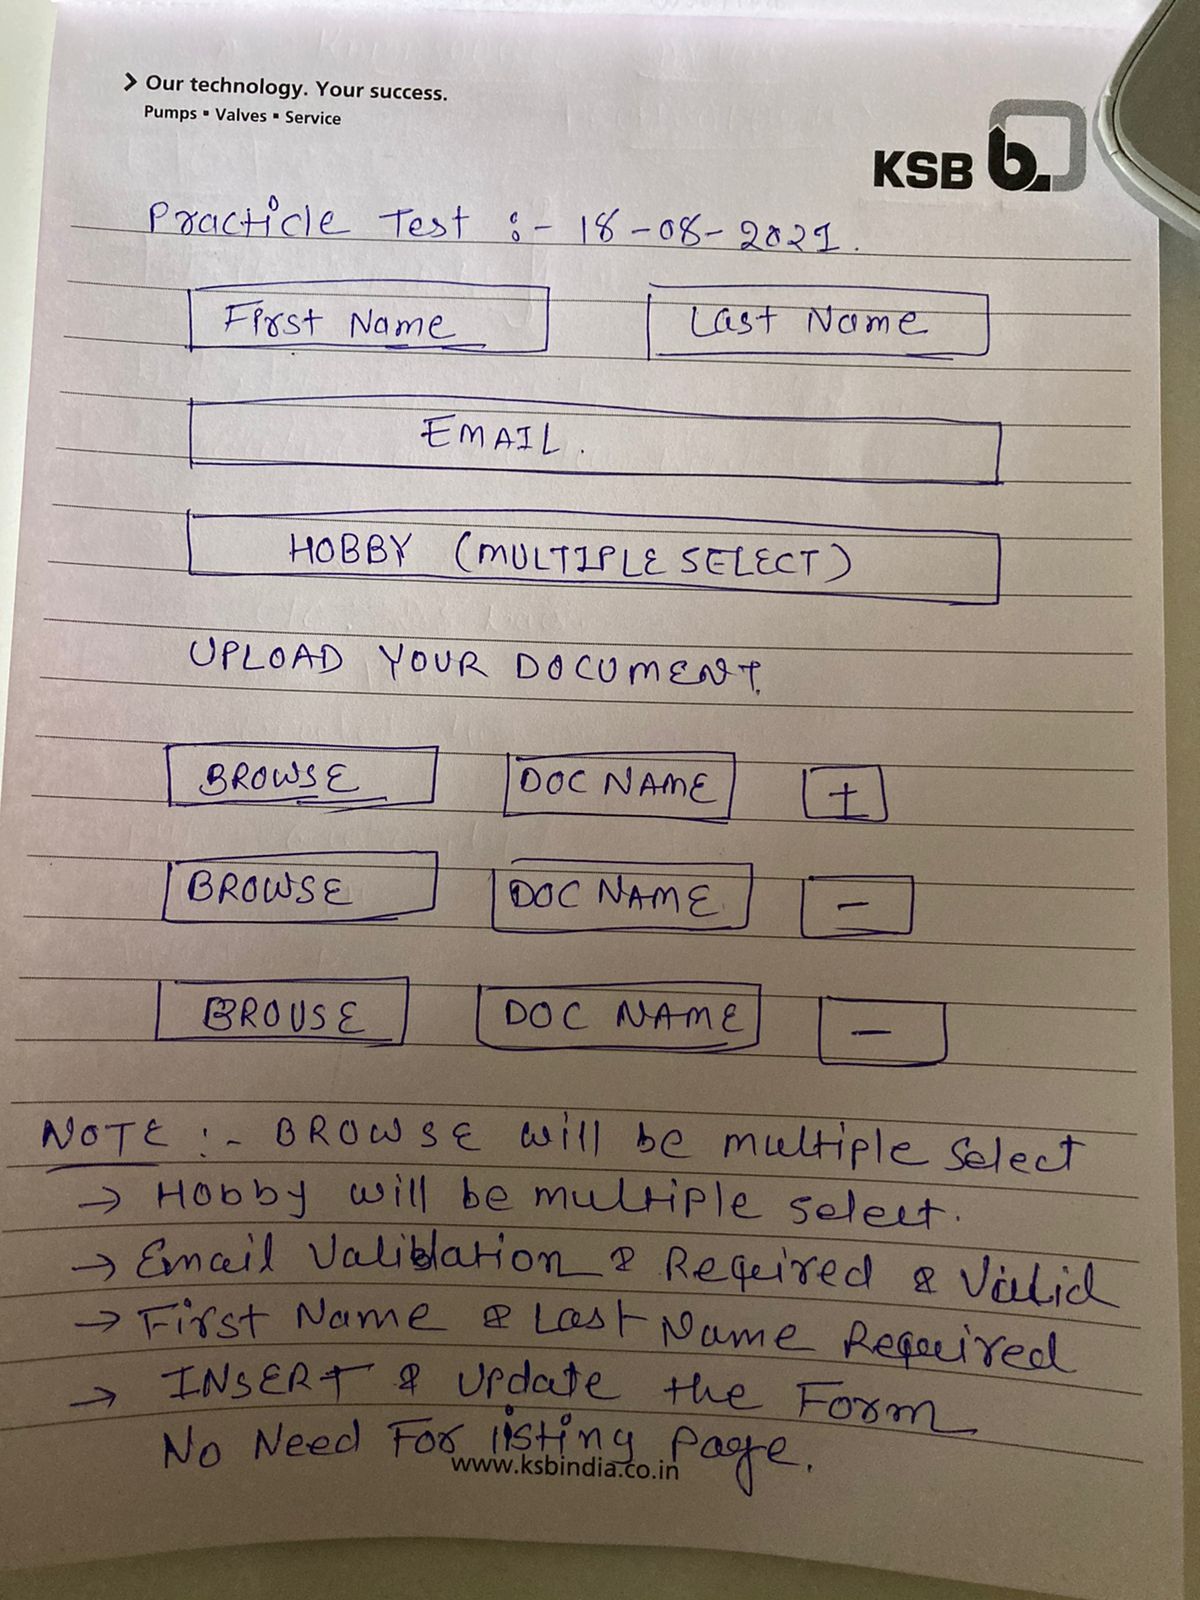 > Our technology. Your success.
Pumps ▪ Valves ▪ Service
KSB b.
Practicle Test :- 18-08-2021.
First Name Last Name
EMAIL.
HOBBY (MULTIPLE SELECT)
UPLOAD YOUR DOCUMENT.
BROWSE DOC NAME +
BROWSE DOC NAME -
BROUSE DOC NAME -
NOTE :- BROWSE will be multiple select
→ Hobby will be multiple select.
→ Email Validation & Required & Valid
→ First Name & Last Name Required
→ INSERT & Update the Form
No Need For listing page.
www.ksbindia.co.in